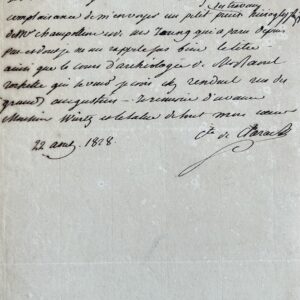 du travail
complaisance de m'envoyer un petit précis hiéroglyph
de Mr champollion avec Mr Young qui a paru depuis
peu et dont je ne me rappelle pas bien le titre
ainsi que le cours d'archéologie de Mr Raoul
rochette qui se vend je crois chez rue des
grands augustins - remercie d'avance
Monsieur Würtz et le salue de tout mon cœur
22 1828.
Cte de Clarac